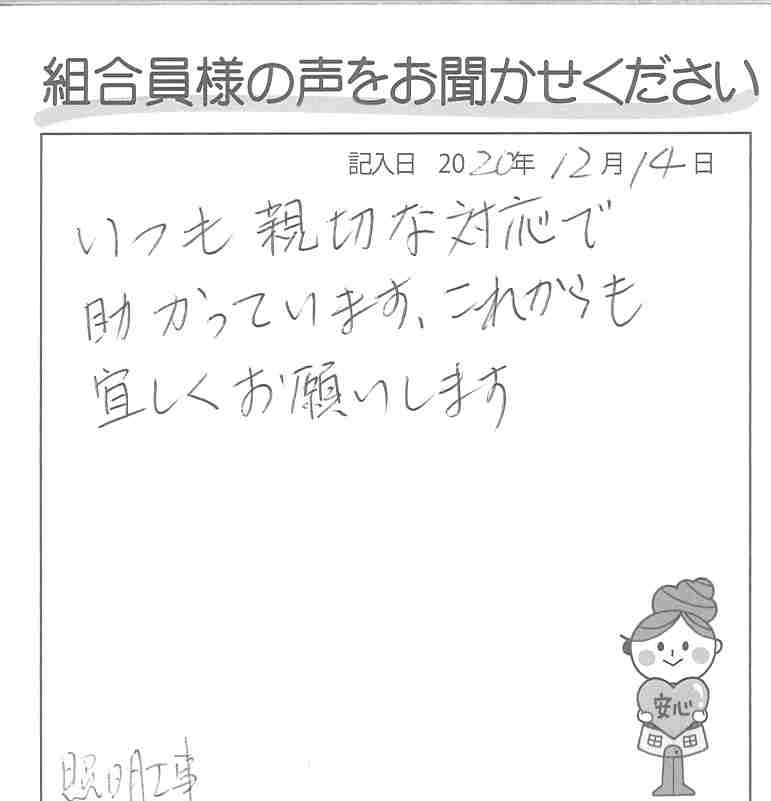 組合員様の声をお聞かせください
記入日 2020年 12月 14日
いつも親切な対応で
助かっています、これからも
宜しくお願いします
安心
照明工事